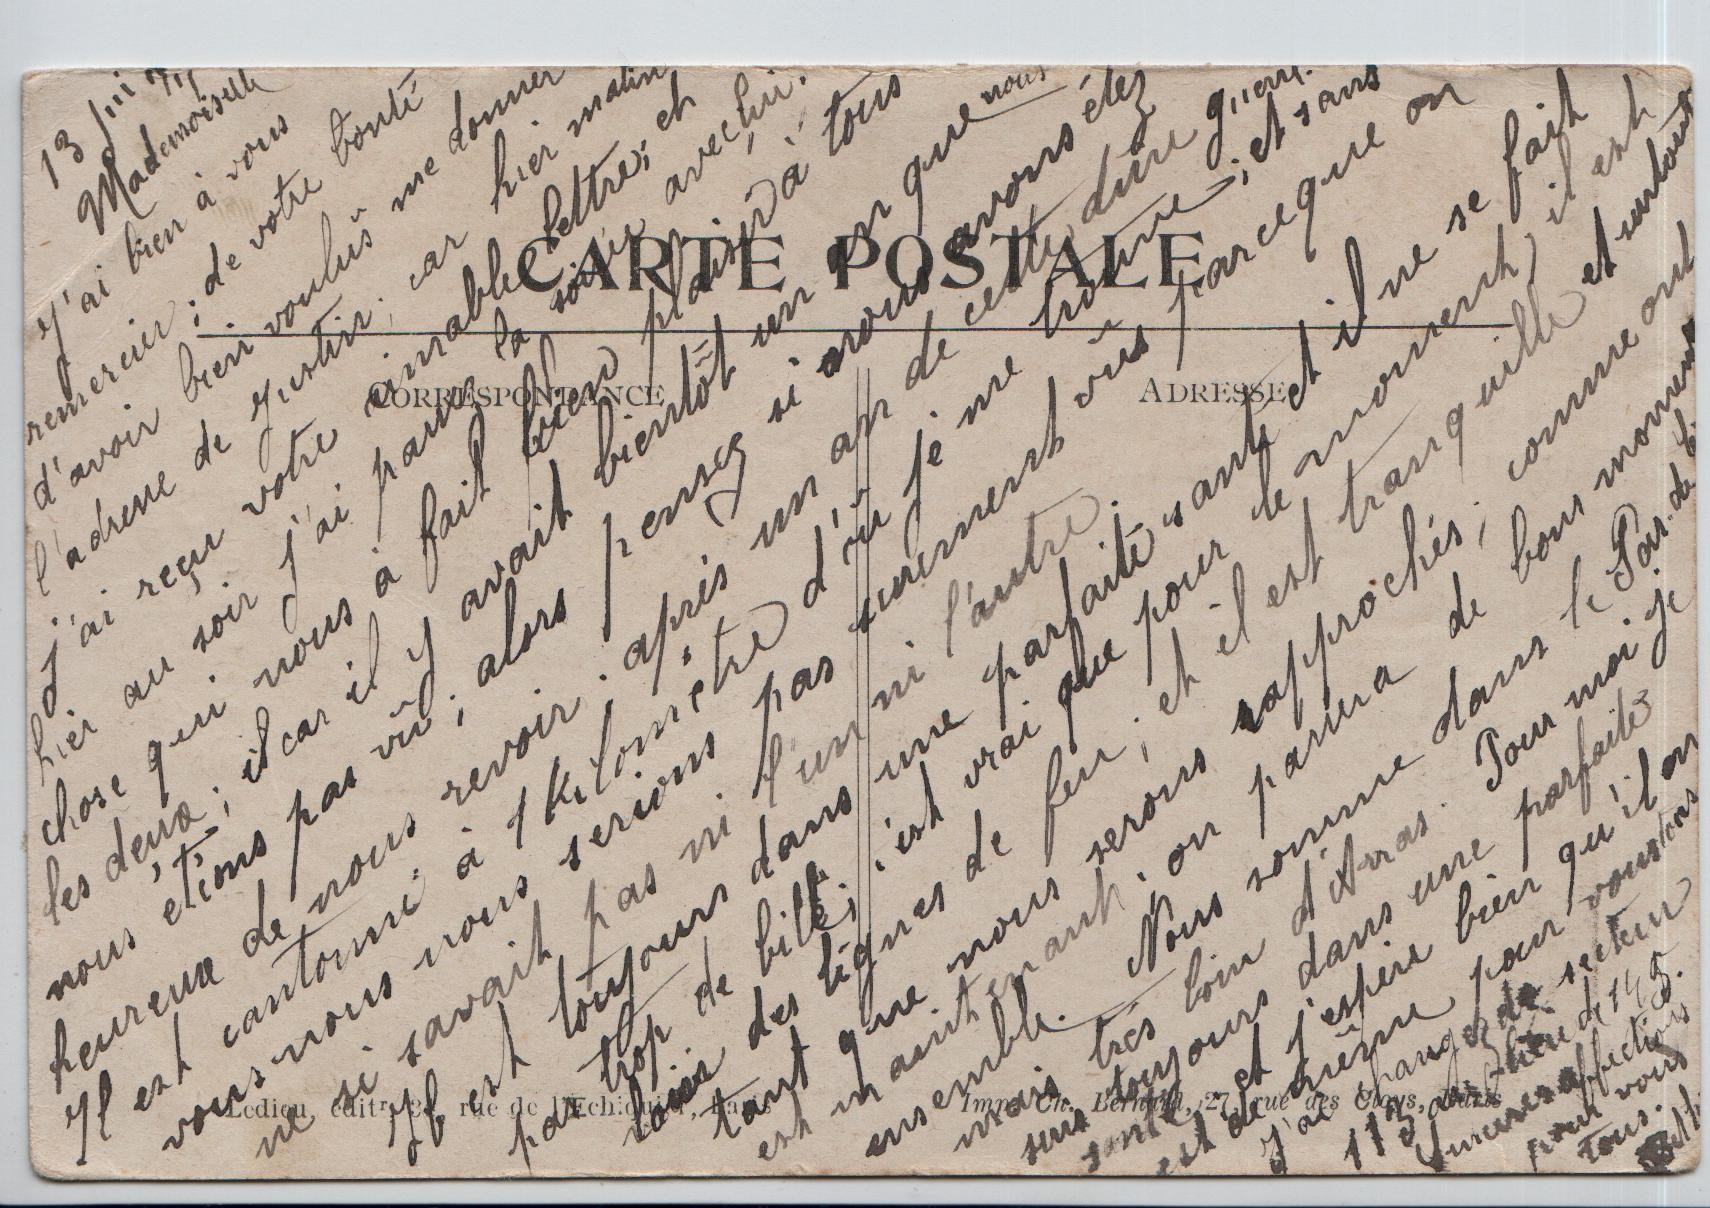 13
Mademoiselle
J'ai bien à vous
remercier; de votre bonté
d'avoir bien voulus me donner
l'adresse de Justin; car hier matin
J'ai reçu votre aimable lettre; et
hier au soir j'ai passé la soirée avec lui.
chose qui nous à fait bien plaisir à tous
les deux; il car il y avait bientôt un an que nous
nous étions pas vû; alors pensez si nous avons étez
heureux de nous revoir. après un an de cette dure guerre.
Il est cantonné à 1 Kilomètre d'où je me trouve; et sans
vous nous nous serions pas surement vûs parceque on
ne si savait pas ni l'un ni l'autre.
Il est toujours dans une parfaite santé et il ne se fait
pas trop de bile; c'est vrai que pour le moment, il est
loin des lignes de feu; et il est tranquille et surtout
tant que nous serons rapprochés; comme ont
est maintenant; on passera de bons moments
ensemble. Nous somme dans le Pas-de-
mais très loin d'Arras. Pour moi je
suis toujours dans une parfaite
santé et j'espère bien qu'il en
est de même pour vous tous
J'ai changez de secteur
113 au lieu de 145.
affections
pour vous
tous.
CARTE POSTALE
CORRESPONDANCE
ADRESSE
Ledieu, éditr, rue de l'Echiquier, Paris
Imp. Ch. Bernard, 27, rue des Cloys, Paris